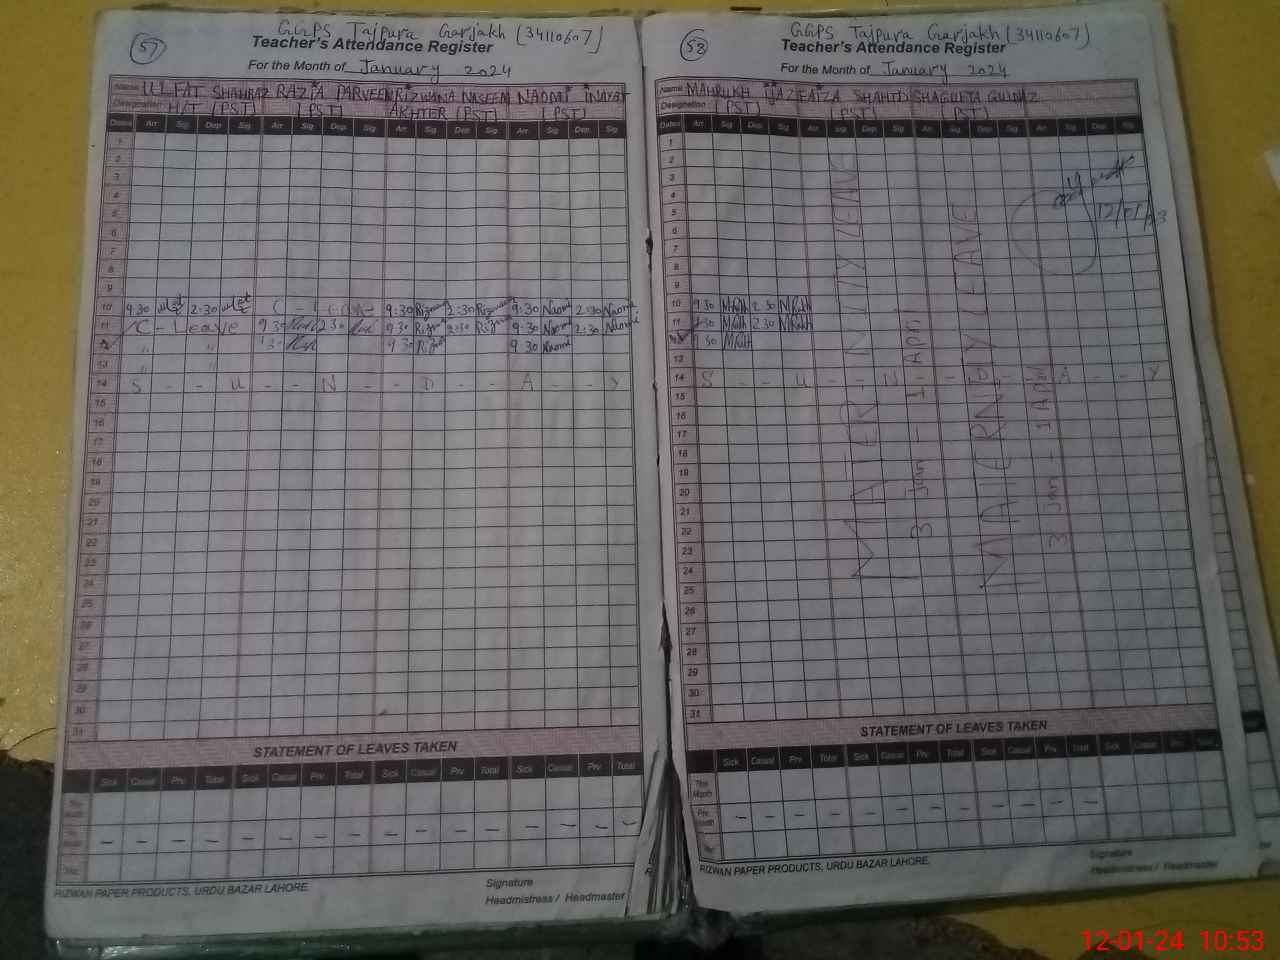 57
GGPS Tajpura Garjakh (34110607)
Teacher's Attendance Register
For the Month of January 2024
Name ULFAT SHAHBAZ RAZIA PARVEEN RIZWANA NASEEM NAOMI INAYAT
Designation H/T (PST) (PST) AKHTER (PST) (PST)
Dates Arr. Sig. Dep. Sig. Arr. Sig. Dep. Sig. Arr. Sig. Dep. Sig. Arr. Sig. Dep. Sig
1
2
3
4
5
6
7
8
9
10 9:30 2:30 C - Leave 9:30 2:30 9:30 Naomi 2:30 Naomi
11 C - Leave 9:30 2:30 9:30 2:30 9:30 Naomi 2:30 Naomi
12 " " 9:30 9:30 9:30 Naomi
13 " "
14 S - - U - - N - - D - - A - - Y
15
16
17
18
19
20
21
22
23
24
25
26
27
28
29
30
31
STATEMENT OF LEAVES TAKEN
Sick Casual Prv. Total Sick Casual Prv. Total Sick Casual Prv. Total Sick Casual Prv. Total
This Month
Pre. Month - - - - - - - - - - - - - - - -
RIZWAN PAPER PRODUCTS, URDU BAZAR LAHORE.
Signature
Headmistress / Headmaster
58
GGPS Tajpura Garjakh (34110607)
Teacher's Attendance Register
For the Month of January 2024
Name MAHRUKH IJAZ FAIZA SHAHID SHAGUFTA GULNAZ
Designation (PST) (PST) (PST)
Dates Arr. Sig. Dep. Sig. Arr. Sig. Dep. Sig. Arr. Sig. Dep. Sig. Arr. Sig. Dep. Sig
1
2
3
4
5
6
7
8
9
10 9:30 2:30
11 9:30 2:30
12 9:30
13
14 S - - U - - N - - D - - A - - Y
15
16
17
18
19
20
21
22
23
24
25
26
27
28
29
30
31
MATERNITY LEAVE
3 Jan - 1 Apri
MATERNITY LEAVE
3 Jan - 1 Apri
STATEMENT OF LEAVES TAKEN
Sick Casual Prv. Total Sick Casual Prv. Total Sick Casual Prv. Total Sick Casual Prv. Total
This Month
Pre. Month - - - - - - - - - - - -
RIZWAN PAPER PRODUCTS, URDU BAZAR LAHORE.
Signature
Headmistress / Headmaster
12-01-24 10:53